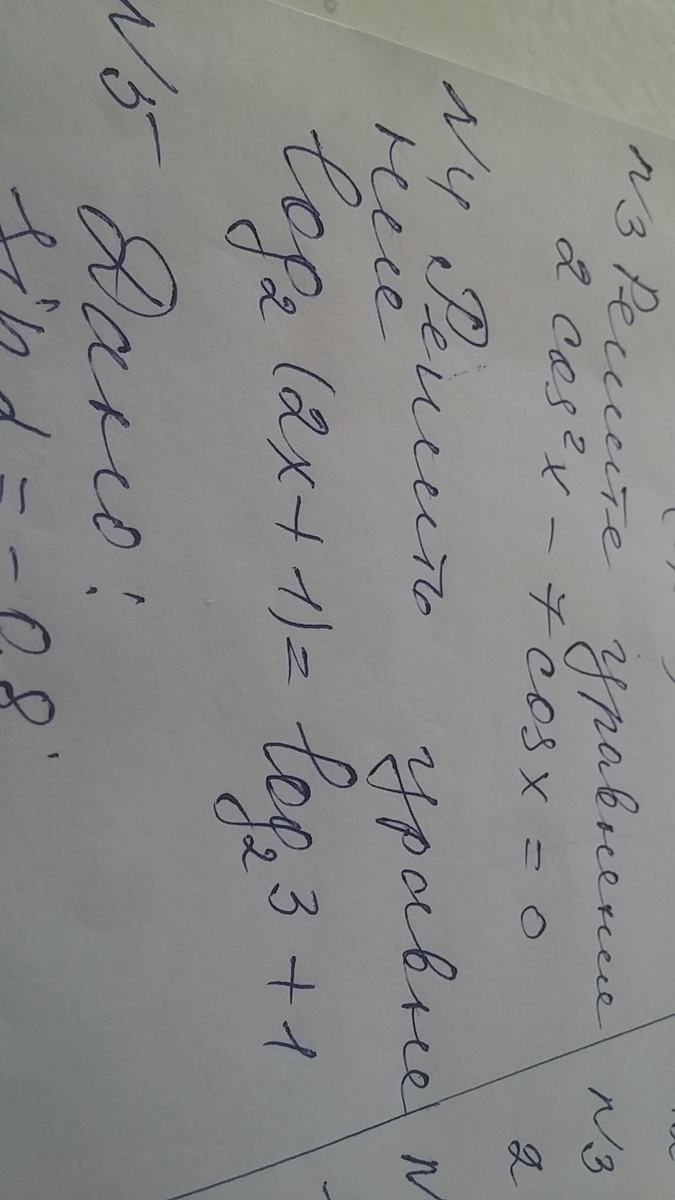 N3 Решите уравнение
2 cos²x - 7 cosx = 0
N4 Решить уравне
ние
log₂ (2x+1) = log₂3 + 1
N5 Дано:
= -0,8;
N3
2
N